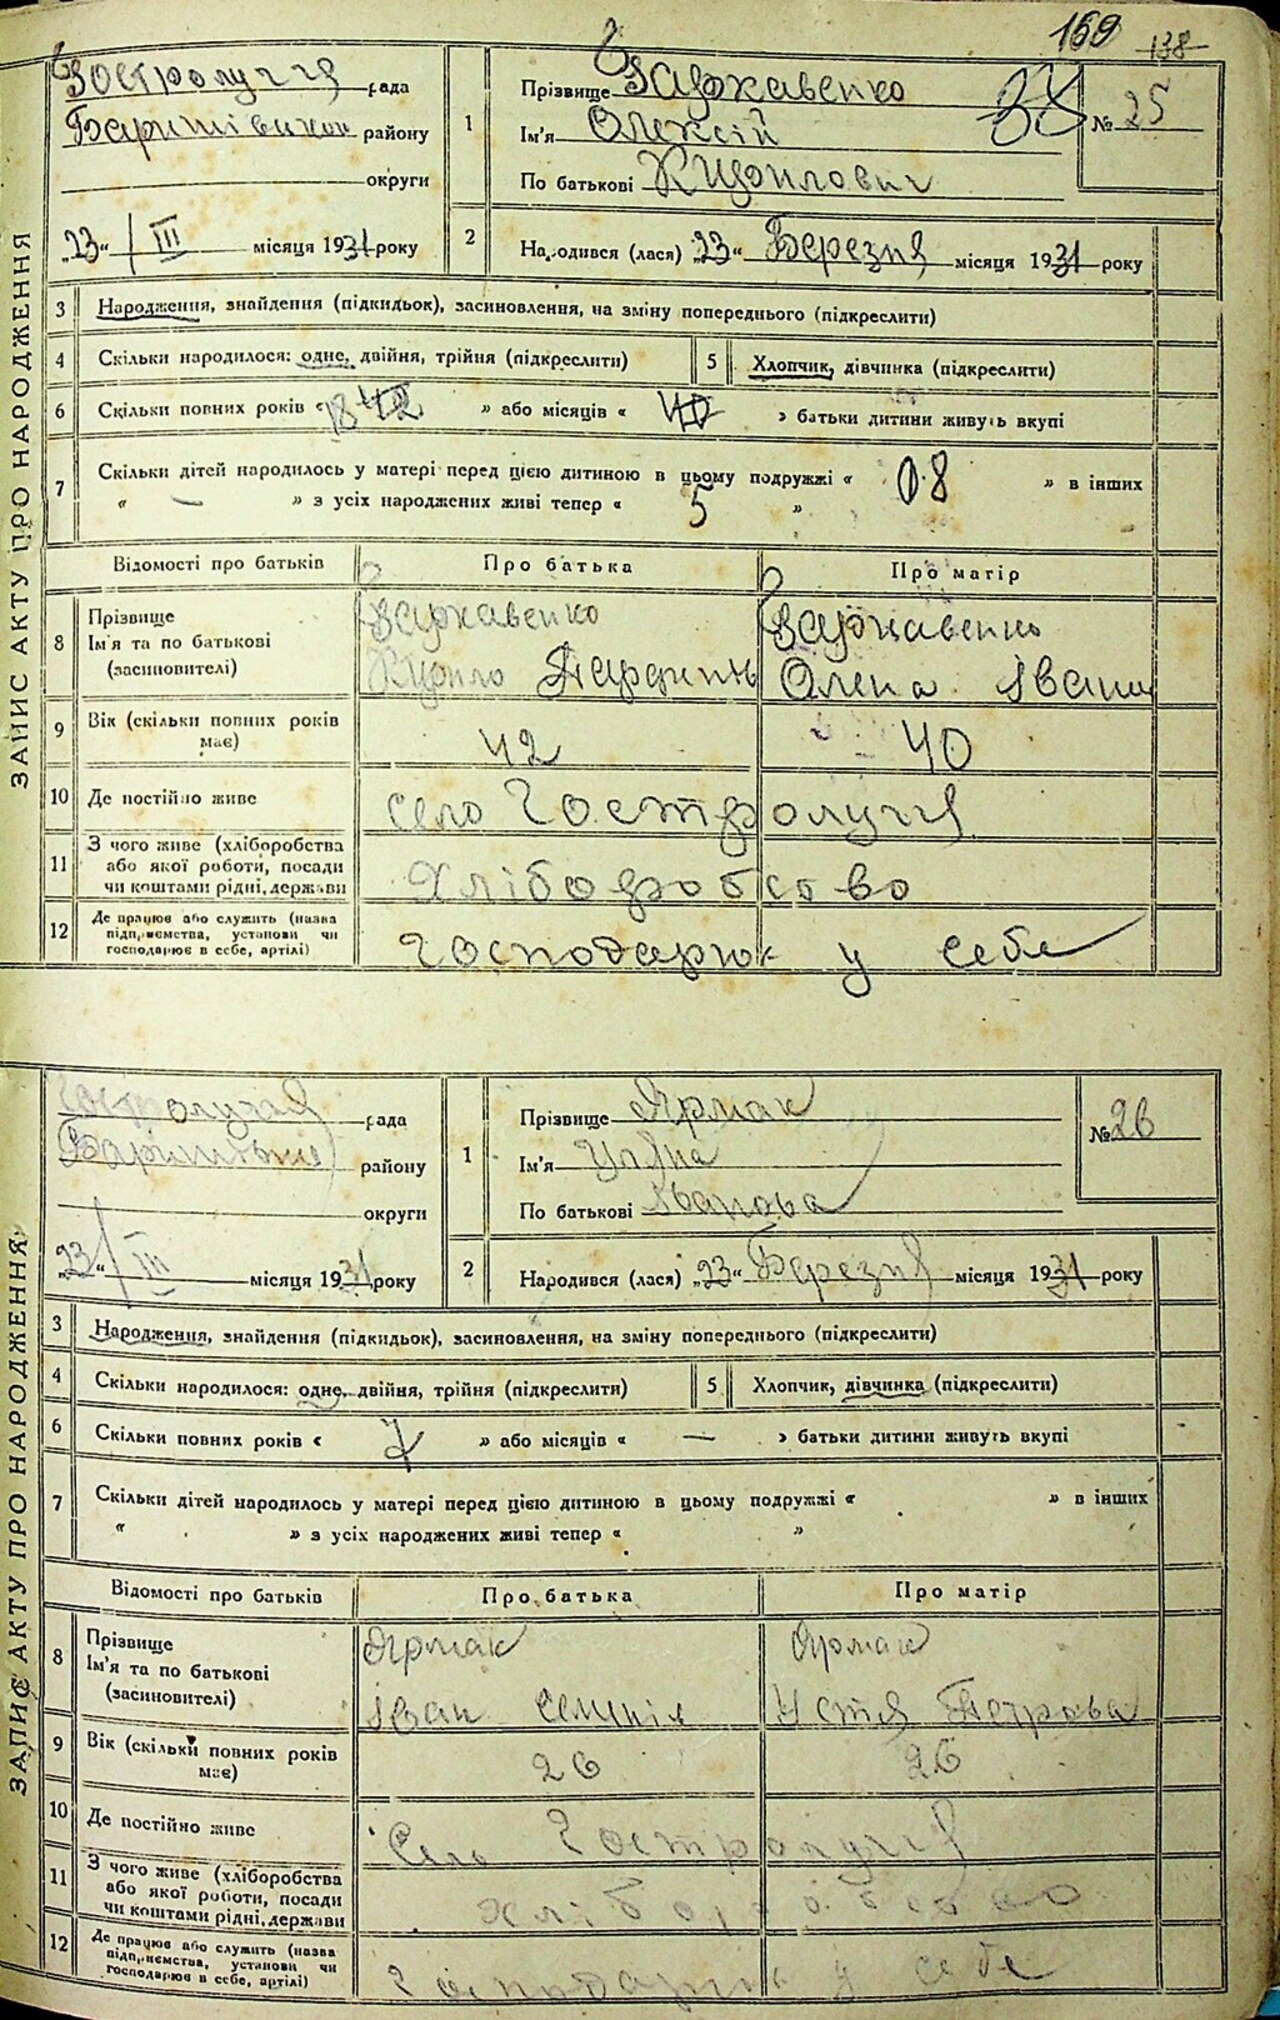 169 138
Гостролуччя рада
Баришівськ району
округи
„23“ / III місяця 1931 року
1
Прізвище Заржавенко
Ім'я Олексій
По батькові Кирилович
38
№ 25
2 Народився (лася) „23“ Березня місяця 1931 року
ЗАПИС АКТУ ПРО НАРОДЖЕННЯ
3 Народження, знайдення (підкидьок), засиновлення, на зміну попереднього (підкреслити)
4 Скільки народилося: одне, двійня, трійня (підкреслити) 5 Хлопчик, дівчинка (підкреслити)
6 Скільки повних років « 18 42 » або місяців « 40 » батьки дитини живуть вкупі
7 Скільки дітей народилось у матері перед цією дитиною в цьому подружжі « 8 » в інших
« — » з усіх народжених живі тепер « 5 »
Відомості про батьків Про батька Про матір
8 Прізвище Заржавенко Заржавенко
Ім'я та по батькові
(засиновителі) Кирило Олена Іван
9 Вік (скільки повних років
має) 42 40
10 Де постійно живе село Гостролуччя
11 З чого живе (хліборобства
або якої роботи, посади
чи коштами рідні, держави Хліборобство
12 Де працює або служить (назва
підприємства, установи чи
господарює в себе, артілі) Господарюк у себе
Гостролуччя рада
Баришівськ району
округи
„23“ / III місяця 1931 року
1
Прізвище Ярмак
Ім'я Уляна
По батькові Іванова
№ 26
2 Народився (лася) „23“ Березня місяця 1931 року
ЗАПИС АКТУ ПРО НАРОДЖЕННЯ
3 Народження, знайдення (підкидьок), засиновлення, на зміну попереднього (підкреслити)
4 Скільки народилося: одне, двійня, трійня (підкреслити) 5 Хлопчик, дівчинка (підкреслити)
6 Скільки повних років « 7 » або місяців « — » батьки дитини живуть вкупі
7 Скільки дітей народилось у матері перед цією дитиною в цьому подружжі « » в інших
« » з усіх народжених живі тепер « »
Відомості про батьків Про батька Про матір
8 Прізвище Ярмак Ярмак
Ім'я та по батькові
(засиновителі) Іван Устя Петрова
9 Вік (скільки повних років
має) 26 26
10 Де постійно живе Село Гостролуччя
11 З чого живе (хліборобства
або якої роботи, посади
чи коштами рідні, держави хліборобство
12 Де працює або служить (назва
підприємства, установи чи
господарює в себе, артілі) Господарюк у себе